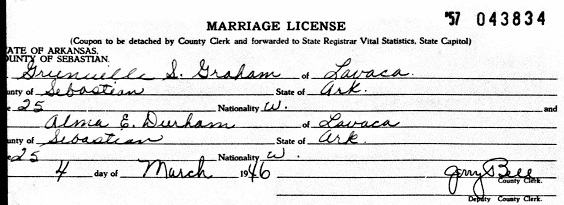 '57 043834
MARRIAGE LICENSE
(Coupon to be detached by County Clerk and forwarded to State Registrar Vital Statistics, State Capitol)
ATE OF ARKANSAS,
OUNTY OF SEBASTIAN.
Grenville S. Graham of Lavaca
unty of Sebastian State of Ark.
e 25 Nationality W. and
Alma E. Durham of Lavaca
unty of Sebastian State of Ark
e 25 Nationality W.
4 day of March 1946 Jerry Bell
County Clerk.
Deputy County Clerk.